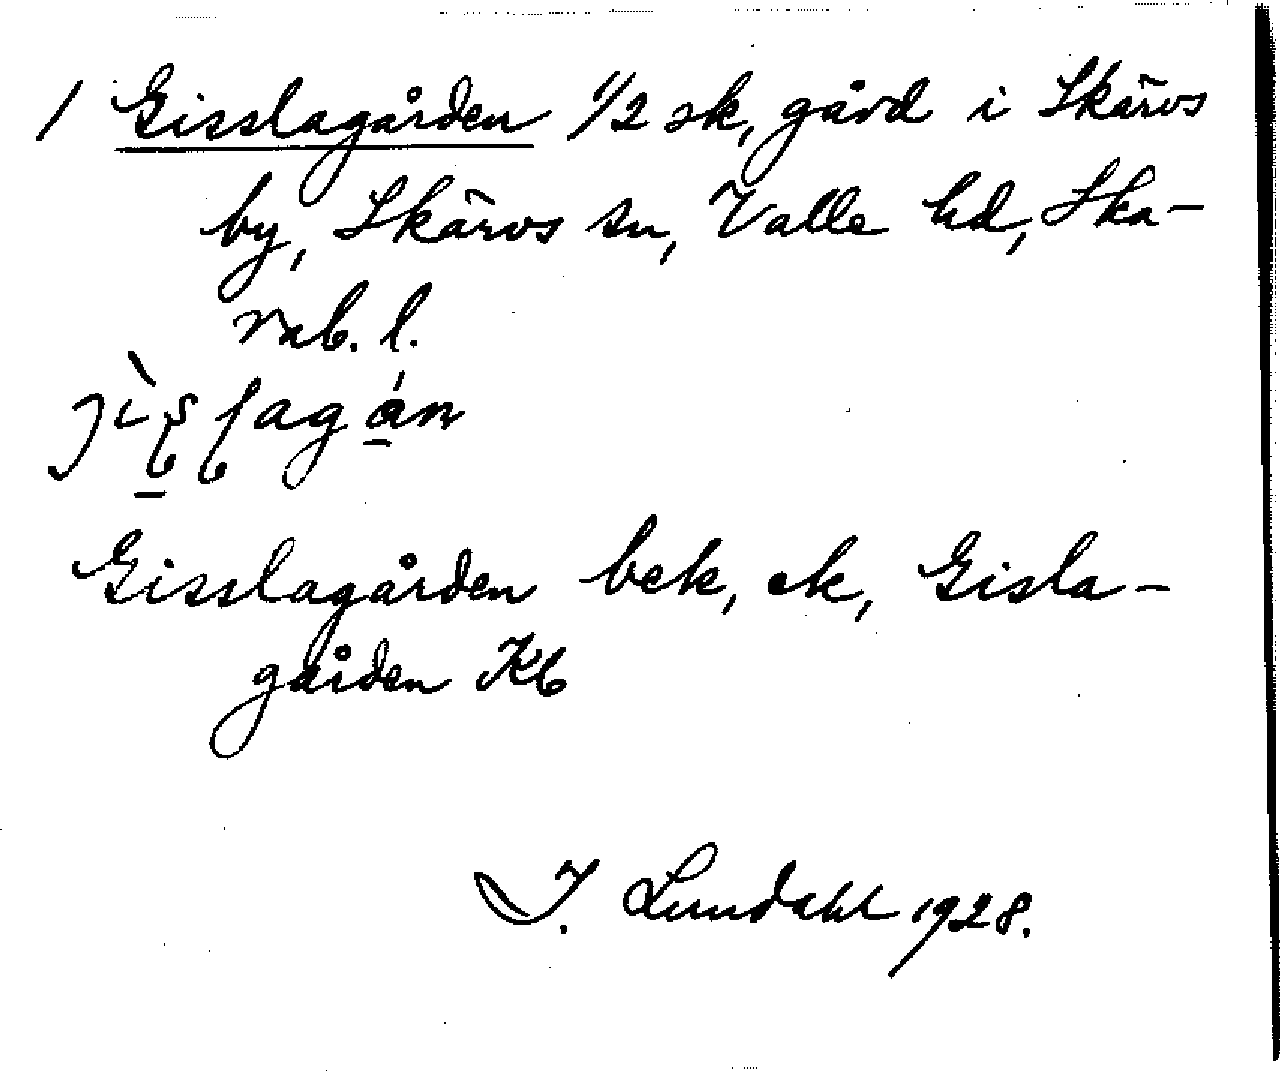 1 Gisslagården 1/2 sk, gård i Skärvs
by, Skärvs sn, Valle hd, Ska-
rab. l.
Gisslagården bek, ek, Gisla-
gården Kb
I. Lundahl 1928.